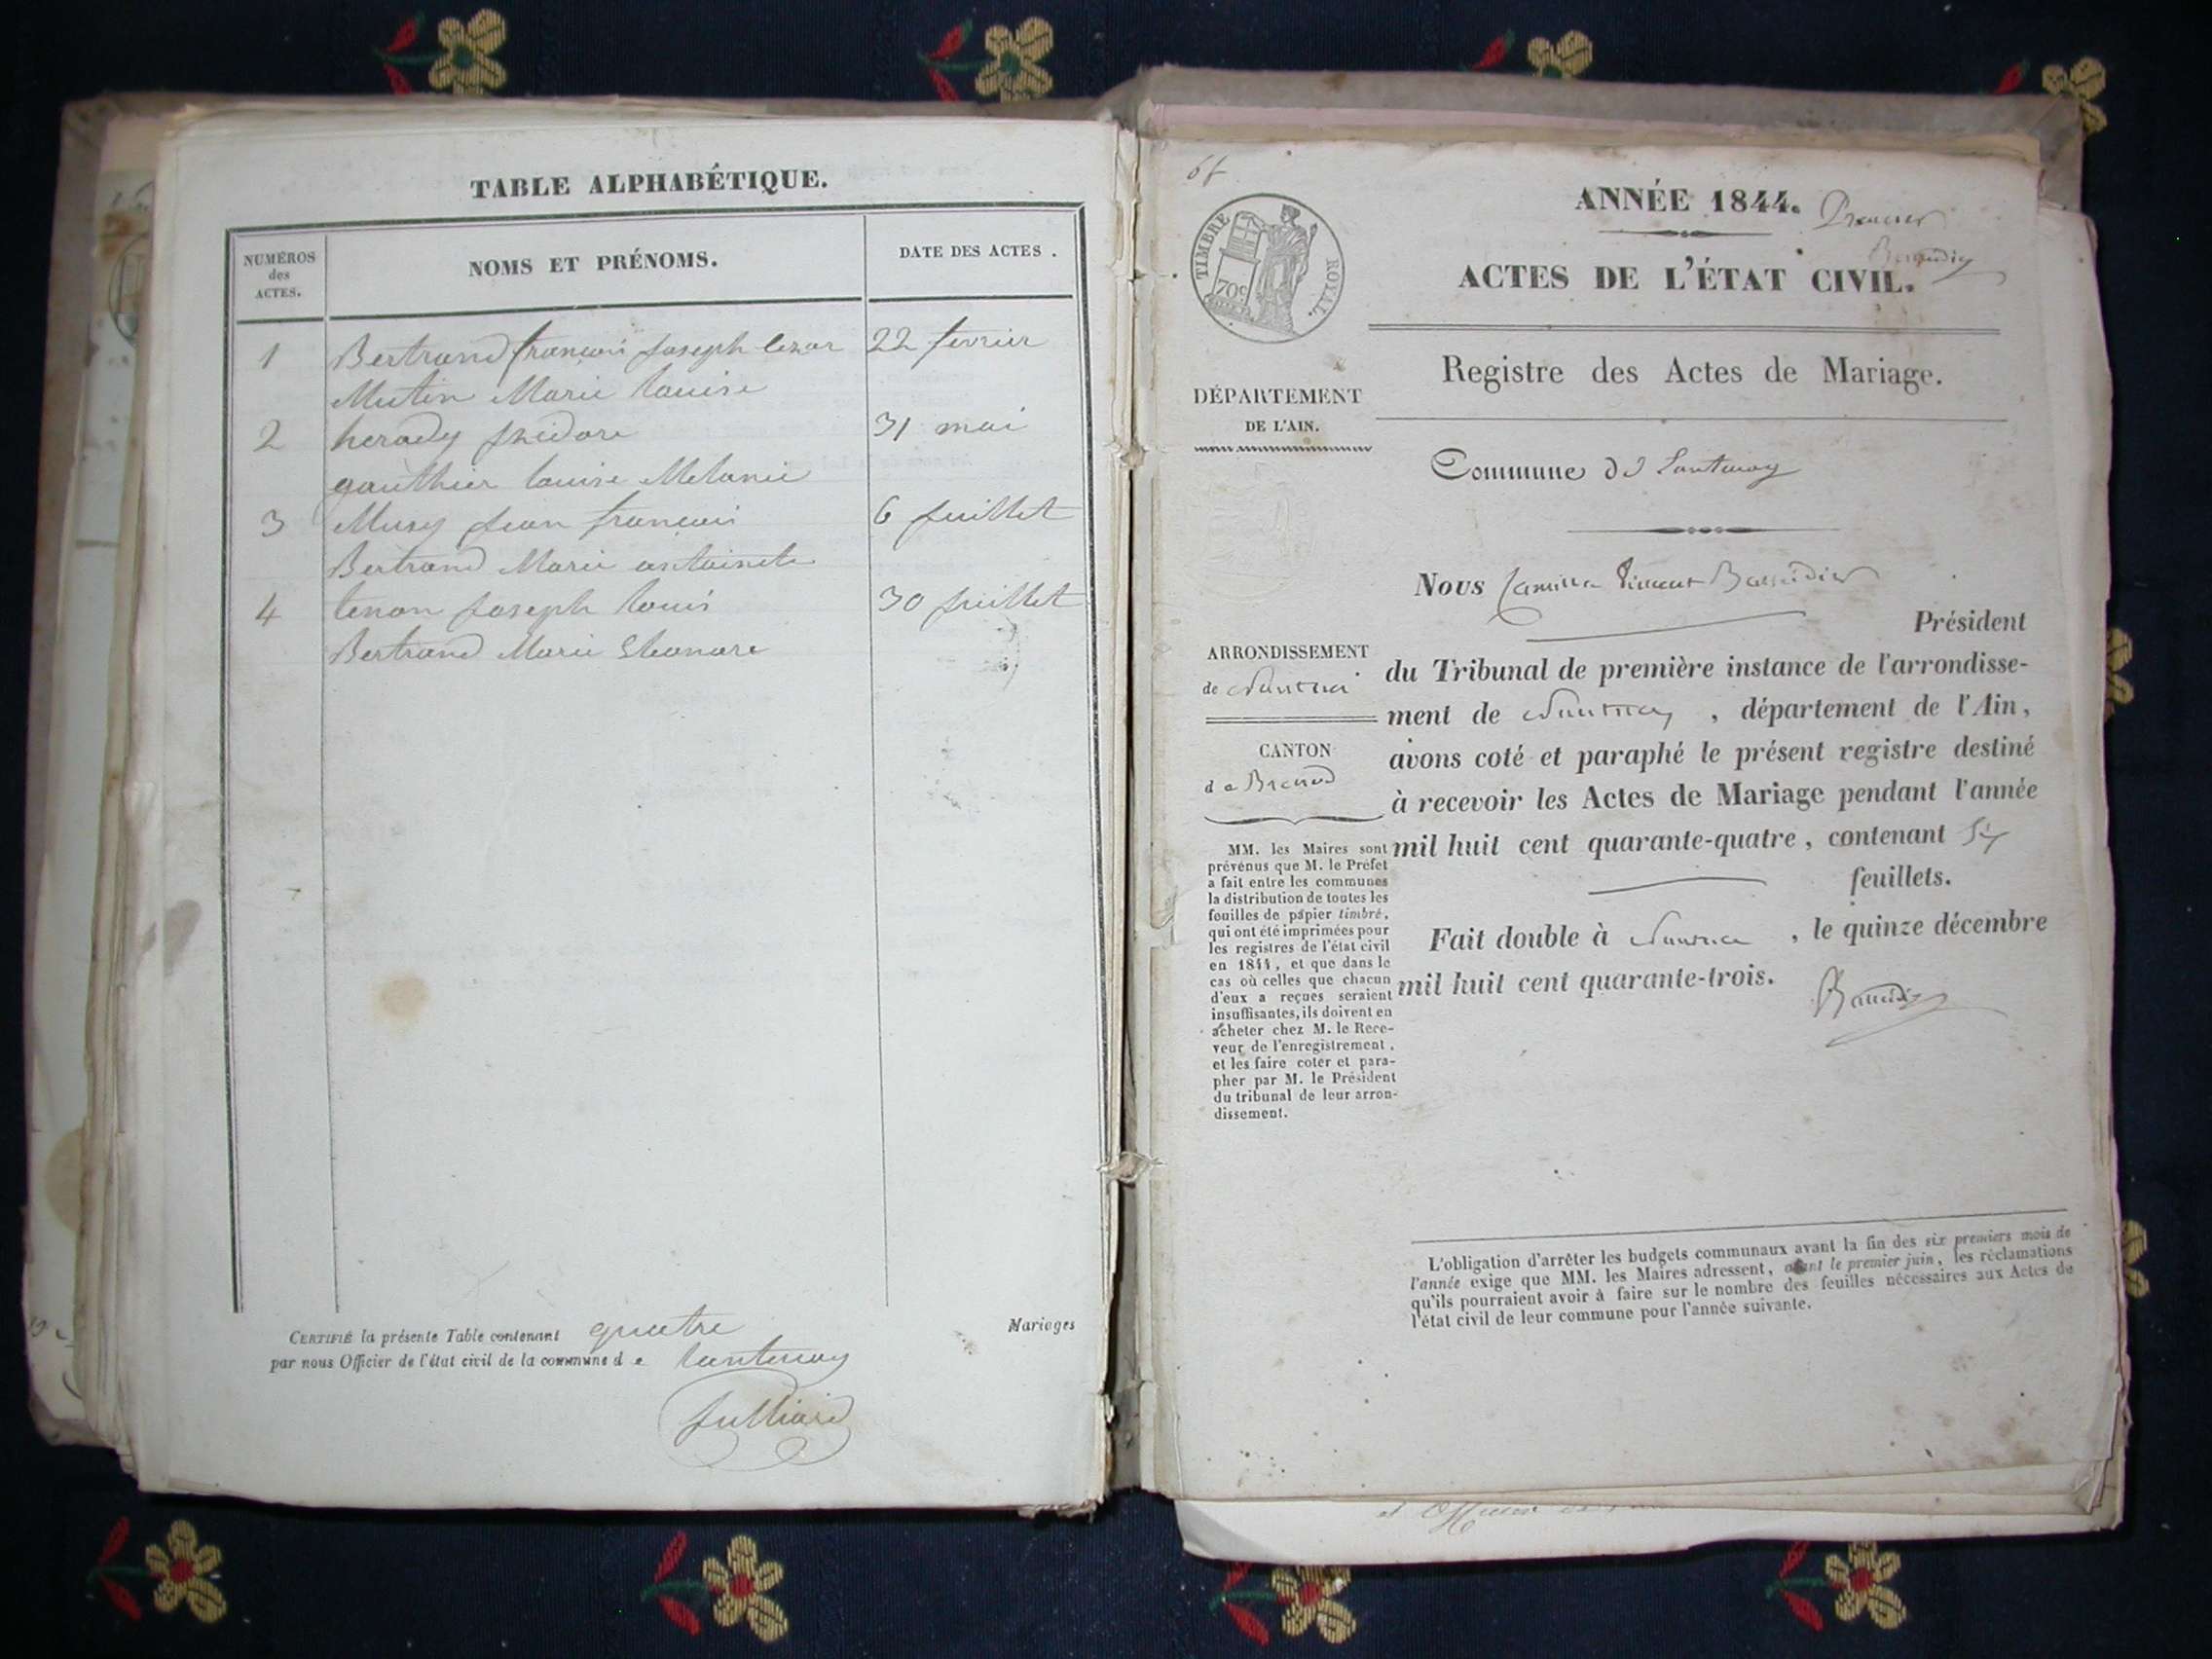 TABLE ALPHABÉTIQUE.
NUMÉROS des ACTES.
NOMS ET PRÉNOMS.
DATE DES ACTES.
1 Bertrand françois Joseph Cezar 22 fevrier
Mutin Marie Louise
2 herody Isidore 31 mai
gauthier louise Melanie
3 Musy Jean françois 6 Juillet
Bertrand Marie antoinete
4 tenon Joseph Louis 30 Juillet
Bertrand Marie Eleonore
CERTIFIÉ la présente Table contenant quatre Mariages
par nous Officier de l'état civil de la commune de lantenay
Julliard
ANNÉE 1844. Premier
TIMBRE ROYAL.
70c
ACTES DE L'ÉTAT CIVIL.
Registre des Actes de Mariage.
DÉPARTEMENT
DE L'AIN.
Commune de Lantenay
Nous Camille Vincent
Président
ARRONDISSEMENT
de Nantua
du Tribunal de première instance de l'arrondisse-
ment de Nantua, département de l'Ain,
CANTON
de Brenod
avons coté et paraphé le présent registre destiné
à recevoir les Actes de Mariage pendant l'année
mil huit cent quarante-quatre, contenant six
feuillets.
Fait double à Nantua, le quinze décembre
mil huit cent quarante-trois.
MM. les Maires sont
prévenus que M. le Préfet
a fait entre les communes
la distribution de toutes les
feuilles de papier timbré,
qui ont été imprimées pour
les registres de l'état civil
en 1844, et que dans le
cas où celles que chacun
d'eux a reçues seraient
insuffisantes, ils doivent en
acheter chez M. le Rece-
veur de l'enregistrement,
et les faire coter et para-
pher par M. le Président
du tribunal de leur arron-
dissement.
L'obligation d'arrêter les budgets communaux avant la fin des six premiers mois de
l'année exige que MM. les Maires adressent, avant le premier juin, les réclamations
qu'ils pourraient avoir à faire sur le nombre des feuilles nécessaires aux Actes de
l'état civil de leur commune pour l'année suivante.